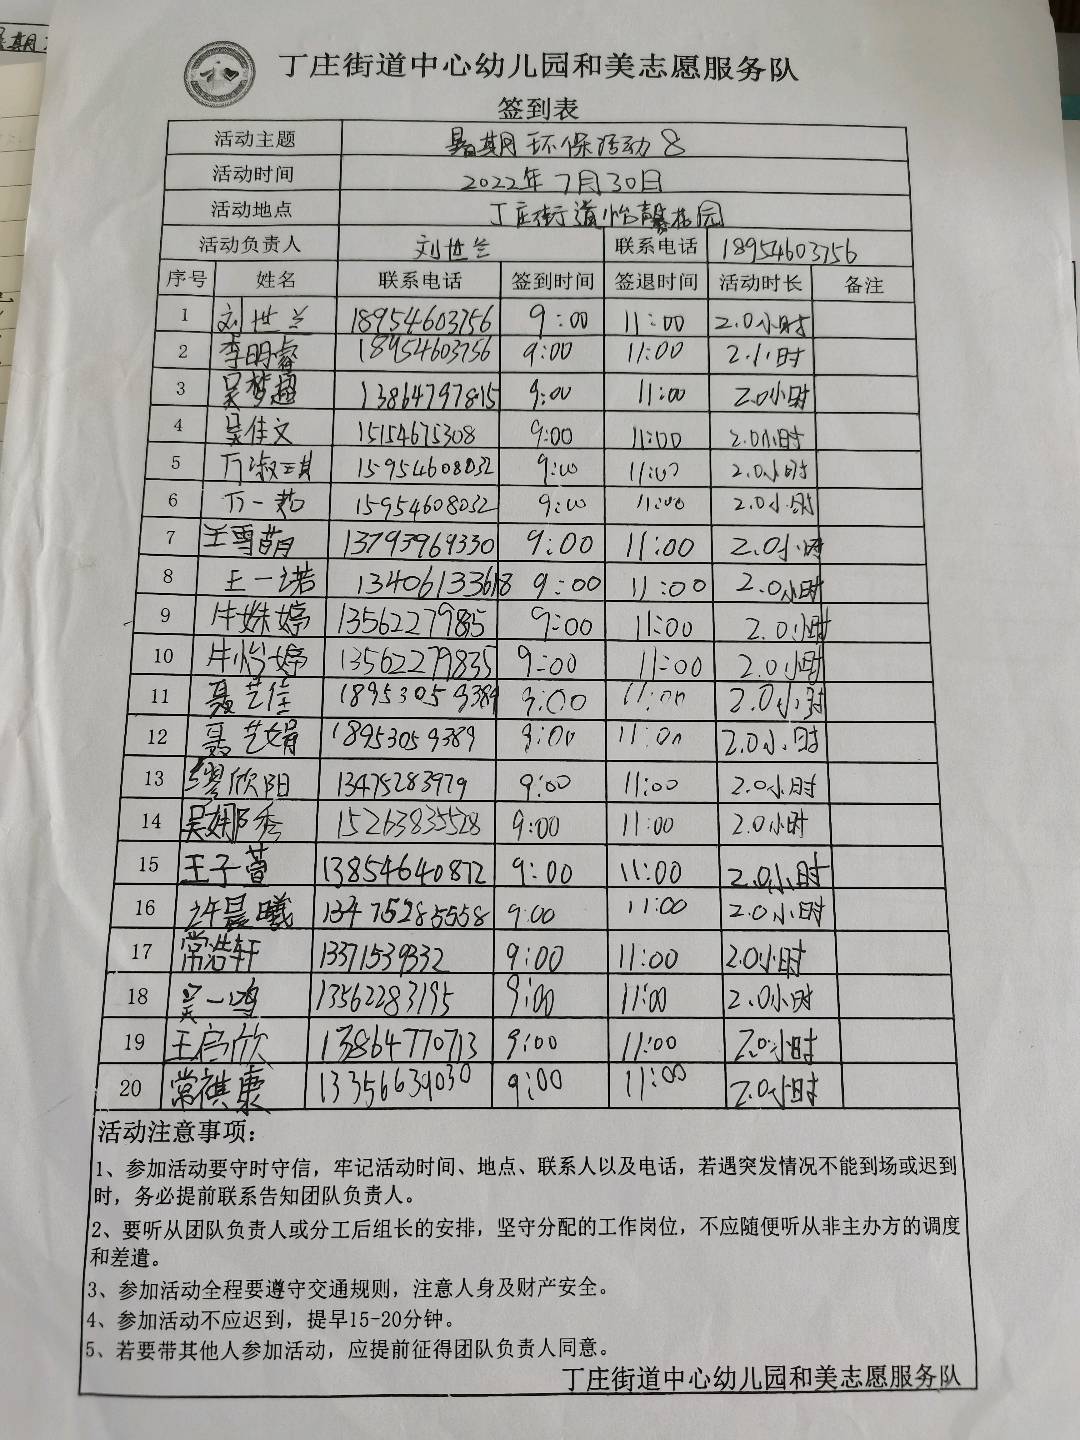 丁庄街道中心幼儿园和美志愿服务队
签到表
活动主题 暑期环保活动8
活动时间 2022年7月30日
活动地点 丁庄街道怡馨花园
活动负责人 刘世兰 联系电话 18954603756
序号 姓名 联系电话 签到时间 签退时间 活动时长 备注
1 刘世兰 18954603756 9:00 11:00 2.0小时
2 李明睿 18954603756 9:00 11:00 2.小时
3 吴梦超 13864797815 9:00 11:00 2.0小时
4 吴佳文 15154675308 9:00 11:00 2.0小时
5 万淑琪 15954608032 9:00 11:00 2.0小时
6 万一茹 15954608032 9:00 11:00 2.0小时
7 王雪萌 13793969330 9:00 11:00 2.0小时
8 王一诺 13406133618 9:00 11:00 2.0小时
9 牛姝婷 13562279985 9:00 11:00 2.0小时
10 牛怡婷 13562279835 9:00 11:00 2.0小时
11 聂艺佳 18953059389 9:00 11:00 2.0小时
12 聂艺娟 18953059389 9:00 11:00 2.0小时
13 缪欣阳 13475283979 9:00 11:00 2.0小时
14 吴娜秀 15263835528 9:00 11:00 2.0小时
15 王子萱 13854640872 9:00 11:00 2.0小时
16 许晨曦 13475285558 9:00 11:00 2.0小时
17 常浩轩 13371539332 9:00 11:00 2.0小时
18 吴一鸣 13562283195 9:00 11:00 2.0小时
19 王启欣 13864770713 9:00 11:00 2.0小时
20 常祺康 13356639030 9:00 11:00 2.0小时
活动注意事项：
1、参加活动要守时守信，牢记活动时间、地点、联系人以及电话，若遇突发情况不能到场或迟到
时，务必提前联系告知团队负责人。
2、要听从团队负责人或分工后组长的安排，坚守分配的工作岗位，不应随便听从非主办方的调度
和差遣。
3、参加活动全程要遵守交通规则，注意人身及财产安全。
4、参加活动不应迟到，提早15-20分钟。
5、若要带其他人参加活动，应提前征得团队负责人同意。
丁庄街道中心幼儿园和美志愿服务队